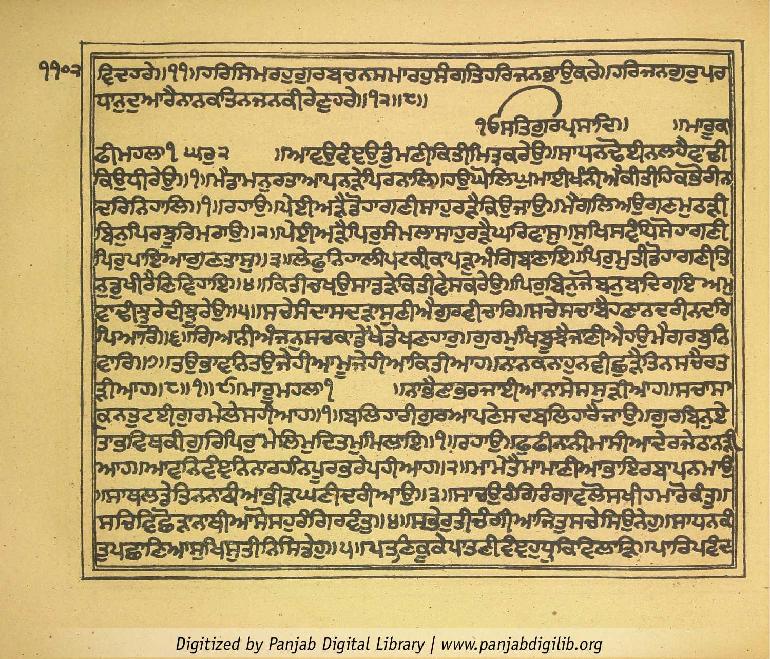 ੧੧੦੨
ਵਿਦਹਰੇ॥੧੧॥ਹਰਿਸਿਮਰਹੁਗੁਰਬਚਨਸਮਾਰਹੁਸੰਗਤਿਹਰਿਜਨਭਾਉਕਰੇ॥ਹਰਿਜਨਗੁਰੁਪਰ
ਧਾਨੁਦੁਆਰੈਨਾਨਕਤਿਨਜਨਕੀਰੇਣੁਹਰੇ॥੧੨॥੮॥
ੴਸਤਿਗੁਰਪ੍ਰਸਾਦਿ॥ ॥ਮਾਰੂਕਾ
ਫੀਮਹਲਾ੧ ਘਰੁ੨ ॥ਆਵਉਵੰਞਉਡੁੰਮਣੀਕਿਤੀਮਿਤ੍ਰਕਰੇਉ॥ਸਾਧਨਢੋਈਨਲਹੈਵਾਢੀ
ਕਿਉਧੀਰੇਉ॥੧॥ਮੈਡਾਮਨੁਰਤਾਆਪਨੜੇਪਿਰਨਾਲਿ॥ਹਉਘੋਲਿਘੁਮਾਈਖੰਨੀਐਕੀਤੀਹਿਕਭੋਰੀਨ
ਦਰਿਨਿਹਾਲਿ॥੧॥ਰਹਾਉ॥ਪੇਈਅੜੈਡੋਹਾਗਣੀਸਾਹੁਰੜੈਕਿਉਜਾਉ॥ਮੈਗਲਿਅਉਗਣਮੁਠੜੀ
ਬਿਨੁਪਿਰਝੂਰਿਮਰਾਉ॥੨॥ਪੇਈਅੜੈਪਿਰੁਸੰਮਲਾਸਾਹੁਰੜੈਘਰਿਵਾਸੁ॥ਸੁਖਿਸਵੰਧਿਸੋਹਾਗਣੀ
ਪਿਰੁਪਾਇਆਗੁਣਤਾਸੁ॥੩॥ਲੇਫੁਨਿਹਾਲੀਪਟਕੀਕਾਪੜੁਅੰਗਿਬਣਾਇ॥ਪਿਰੁਮੁਤੀਡੋਹਾਗਣੀਤਿ
ਨਡੁਖੀਰੈਣਿਵਿਹਾਇ॥੪॥ਕਿਤੀਚਖਉਸਾਡੜੇਕਿਤੀਵੇਸਕਰੇਉ॥ਪਿਰਬਿਨੁਜੋਬਨੁਬਾਦਿਗਇਅਮੁ
ਵਾਢੀਝੂਰੇਦੀਝੂਰੇਉ॥੫॥ਸਚੇਸੰਦਾਸਦੜਾਸੁਣੀਐਗੁਰਵੀਚਾਰਿ॥ਸਚੇਸਚਾਬੈਹਣਾਨਦਰੀਨਦਰਿ
ਪਿਆਰਿ॥੬॥ਗਿਆਨੀਅੰਜਨੁਸਚਕਾਡੇਖੈਡੇਖਣਹਾਰੁ॥ਗੁਰਮੁਖਿਬੂਝੈਜਾਣੀਐਹਉਮੈਗਰਬੁਨਿ
ਵਾਰਿ॥੭॥ਤਉਭਾਵਨਿਤਉਜੇਹੀਆਮੂਜੇਹੀਆਕਿਤੀਆਹ॥ਨਾਨਕਨਾਹੁਨਵੀਛੁੜੈਤਿਨਸਚੈਰਤ
ੜੀਆਹ॥੮॥੧॥੯॥ਮਾਰੂਮਹਲਾ੧ ॥ਨਾਭੈਣਾਭਰਜਾਈਆਨਾਸੇਸਸੁੜੀਆਹ॥ਸਚਾਸਾ
ਕੁਨਤੁਟਈਗੁਰਮੇਲੇਸਹੀਆਹ॥੧॥ਬਲਿਹਾਰੀਗੁਰਆਪਣੇਸਦਬਲਿਹਾਰੈਜਾਉ॥ਗੁਰਬਿਨੁਏ
ਤਾਭਵਿਥਕੀਗੁਰਿਪਿਰੁਮੇਲਿਮੁਦਿਤਮੁਮਿਲਾਇ॥੧॥ਰਹਾਉ॥ਫੁਫੀਨਾਨੀਮਾਸੀਆਦੇਰਜੇਠਾਨੜੀ
ਆਹ॥ਆਵਨਿਵੰਞਨਿਨਾਰਹਨਿਪੂਰਭਰੇਪਹੀਆਹ॥੨॥ਮਾਮੇਤੈਮਾਮਾਣੀਆਭਾਇਰਬਾਪਨਮਾਉ
॥ਸਾਥਲਡੇਤਿਨਨਾਠੀਆਭੀੜਘਣੀਦਰੀਆਉ॥੩॥ਸਾਚਉਰੰਗਿਰੰਗਾਵਲੋਸਖੀਹਮਾਰੋਕੰਤੁ॥
ਸਚਿਵਿਛੋੜਾਨਾਥੀਐਸੋਸਹੁਰੰਗਿਰਵੰਤੁ॥੪॥ਸਭੇਰੁਤੀਚੰਗੀਆਜਿਤੁਸਚੇਸਿਉਨੇਹੁ॥ਸਾਧਨਕੰ
ਤੁਪਛਾਣਿਆਸੁਖਿਸੁਤੀਨਿਸਿਡੇਹੁ॥੫॥ਪਤਣਿਕੂਕੇਪਾਤਣੀਵੰਞਹੁਧ੍ਰੁਕਿਵਿਲਾੜਿ॥ਪਾਰਿਪਵੰਦ
Digitized by Panjab Digital Library | www.panjabdigilib.org